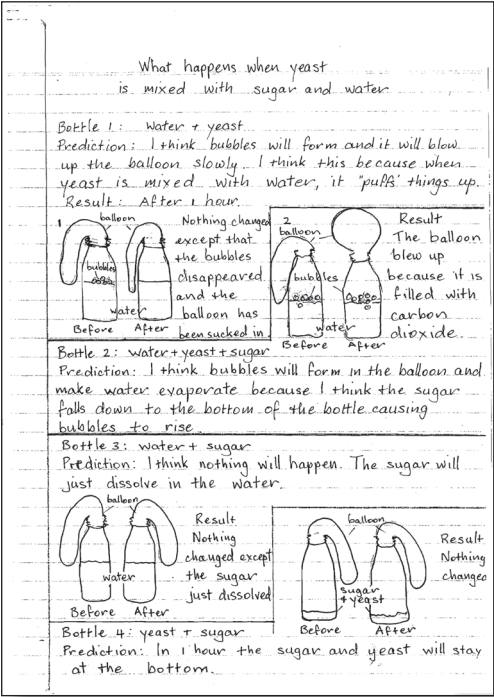 What happens when yeast
is mixed with sugar and water
Bottle 1: Water + yeast
Prediction: I think bubbles will form and it will blow
up the balloon slowly. I think this because when
yeast is mixed with water, it "puffs" things up.
Result: After 1 hour.
1
balloon
bubbles
water
Before After
Nothing changed
except that
the bubbles
disappeared
and the
balloon has
been sucked in
2
balloon
bubbles
water
Before After
Result
The balloon
blew up
because it is
filled with
carbon
dioxide
Bottle 2: water + yeast + sugar
Prediction: I think bubbles will form in the balloon and
make water evaporate because I think the sugar
falls down to the bottom of the bottle causing
bubbles to rise.
Bottle 3: water + sugar
Prediction: I think nothing will happen. The sugar will
just dissolve in the water.
balloon
water
Before After
Result
Nothing
changed except
the sugar
just dissolved
balloon
sugar
+ yeast
Before After
Result
Nothing
changed
Bottle 4: yeast + sugar
Prediction: In 1 hour the sugar and yeast will stay
at the bottom.